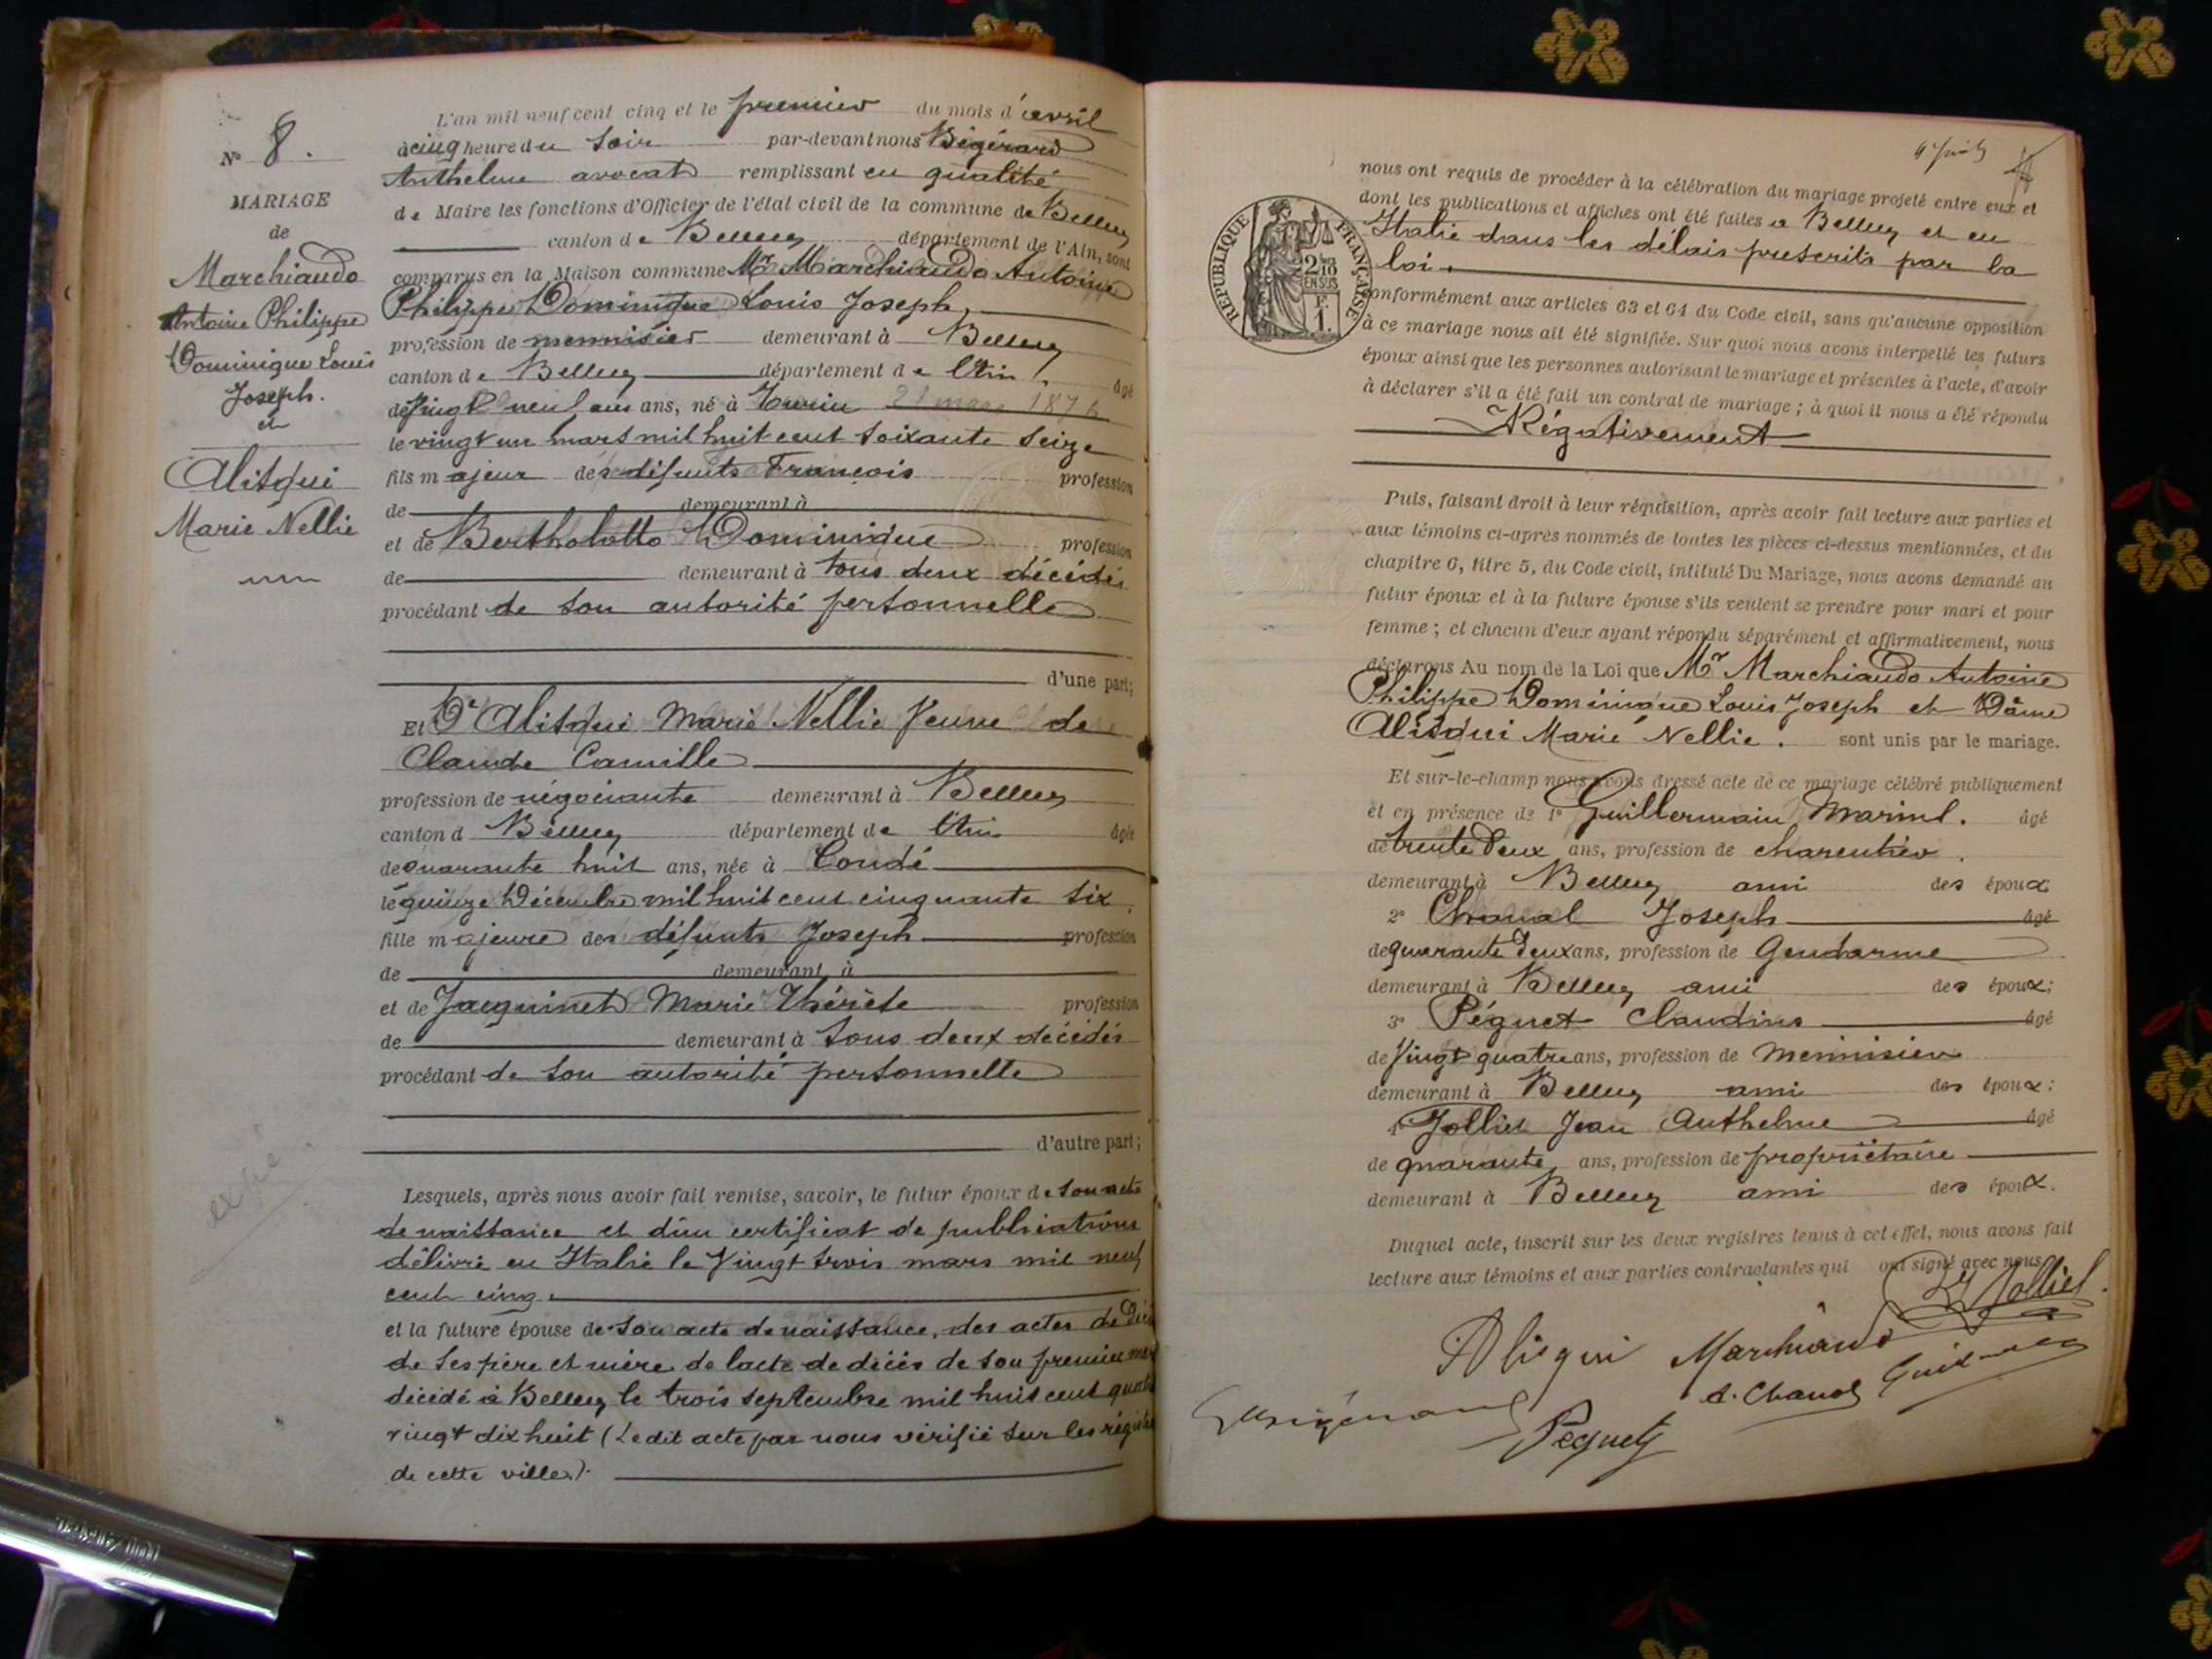 N° 8.
MARIAGE
de
Marchiando
Antoine Philippe
Dominique Louis
Joseph.
et
Alisqui
Marie Nellie
expé.
L'an mil neuf cent cinq et le premier du mois d'avril
à cinq heure du soir par-devant nous Bigérard
Anthelme avocat remplissant en qualité
de Maire les fonctions d'Officier de l'état civil de la commune de Belley
canton de Belley département de l'Ain, sont
comparus en la Maison commune Mr Marchiando Antoine
Philippe Dominique Louis Joseph
profession de menuisier demeurant à Belley
canton de Belley département de l'Ain. âgé
de Vingt neuf ans ans, né à Turin 21 mars 1876
le vingt un mars mil huit cent soixante seize
fils majeur des défunts François profession
de demeurant à
et de Bertholotto Dominique profession
de demeurant à tous deux décédés
procédant de son autorité personnelle
d'une part;
Et De Alisqui Marie Nellie Veuve de
Claude Camille
profession de négociante demeurant à Belley
canton d Belley département de l'Ain âgée
de quarante huit ans, née à Condé
le quinze Décembre mil huit cent cinquante six
fille majeure des défunts Joseph profession
de demeurant à
et de Jacquinet Marie Thérèse profession
de demeurant à tous deux décédés
procédant de son autorité personnelle
d'autre part;
Lesquels, après nous avoir fait remise, savoir, le futur époux de son acte
de naissance et d'un certificat de publications
délivré en Italie le Vingt trois mars mil neuf
cent cinq.
et la future épouse de son acte de naissance, des actes de décès
de ses père et mère de l'acte de décès de son premier mari
décédé à Belley le trois septembre mil huit cent quatre
vingt dix huit (Ledit acte par nous vérifié sur les régistres
de cette ville).
nous ont requis de procéder à la célébration du mariage projeté entre eux et
dont les publications et affiches ont été faites à Belley et en
Italie dans les délais prescrits par la
loi.
REPUBLIQUE FRANÇAISE
2/10
EN SUS
F.
1.
conformément aux articles 63 et 64 du Code civil, sans qu'aucune opposition
à ce mariage nous ait été signifiée. Sur quoi nous avons interpellé les futurs
époux ainsi que les personnes autorisant le mariage et présentes à l'acte, d'avoir
à déclarer s'il a été fait un contrat de mariage; à quoi il nous a été répondu
Négativement
Puis, faisant droit à leur réquisition, après avoir fait lecture aux parties et
aux témoins ci-après nommés de toutes les pièces ci-dessus mentionnées, et du
chapitre 6, titre 5, du Code civil, intitulé Du Mariage, nous avons demandé au
futur époux et à la future épouse s'ils veulent se prendre pour mari et pour
femme; et chacun d'eux ayant répondu séparément et affirmativement, nous
déclarons Au nom de la Loi que Mr Marchiando Antoine
Philippe Dominique Louis Joseph et Dâme
Alisqui Marie Nellie. sont unis par le mariage.
Et sur-le-champ nous avons dressé acte de ce mariage célébré publiquement
et en présence de 1° Guillermain Marius. âgé
de trente deux ans, profession de charcutier.
demeurant à Belley ami des époux
2° Chanal Joseph âgé
de quarante deux ans, profession de Gendarme
demeurant à Belley ami des époux;
3° Péquet Claudius âgé
de Vingt quatre ans, profession de Menuisier
demeurant à Belley ami des époux:
4° Jolliet Jean Anthelme âgé
de quarante ans, profession de propriétaire
demeurant à Belley ami des époux.
Duquel acte, inscrit sur les deux registres tenus à cet effet, nous avons fait
lecture aux témoins et aux parties contractantes qui ont signé avec nous
Jolliet
Alisqui Marchiando
Péquet